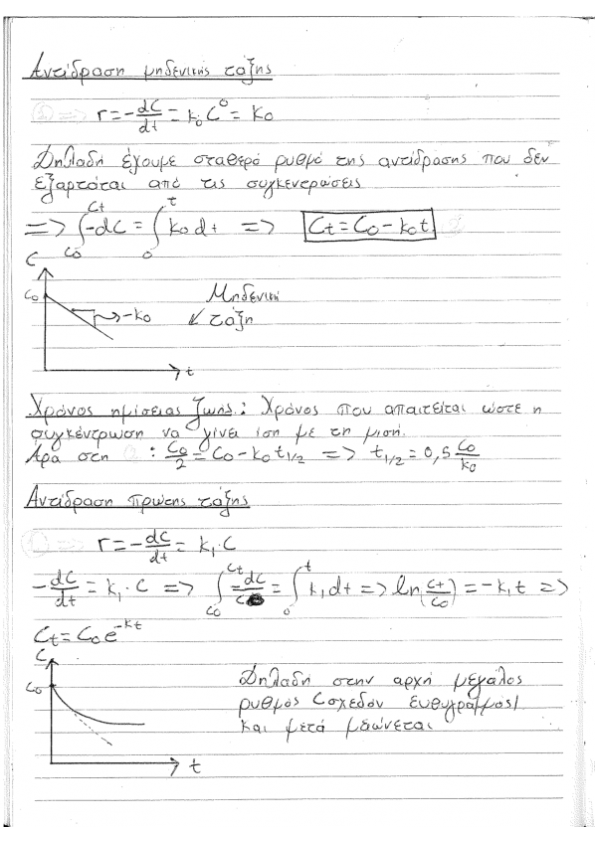 Αντίδραση μηδενικής τάξης
r = -dC/dt = k₀C⁰ = k₀
Δηλαδή έχουμε σταθερό ρυθμό της αντίδρασης που δεν
εξαρτάται από τις συγκεντρώσεις
=> ∫_{C₀}^{Ct} -dC = ∫_{0}^{t} k₀dt => Ct = C₀ - k₀t
C
C₀
-k₀
Μηδενική
↙ τάξη
t
Χρόνος ημίσειας ζωής: Χρόνος που απαιτείται ώστε η
συγκέντρωση να γίνει ίση με τη μισή.
Άρα στη : C₀/2 = C₀ - k₀t₁/₂ => t₁/₂ = 0,5 C₀/k₀
Αντίδραση πρώτης τάξης
r = -dC/dt = k₁·C
-dC/dt = k₁·C => ∫_{C₀}^{Ct} -dC/C = ∫_{0}^{t} k₁dt => ln(Ct/C₀) = -k₁t =>
Ct = C₀e^{-kt}
C
C₀
Δηλαδή στην αρχή μεγάλος
ρυθμός (σχεδόν ευθύγραμμος)
και μετά μειώνεται
t